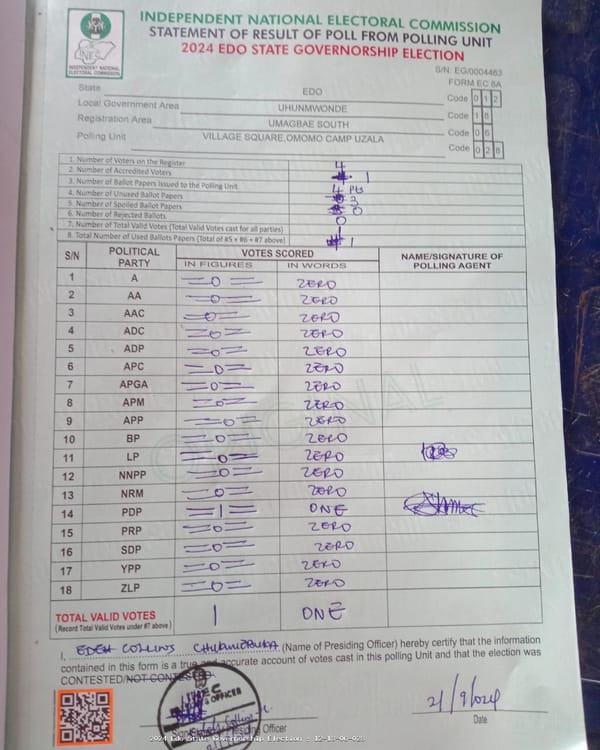 INDEPENDENT NATIONAL ELECTORAL COMMISSION
STATEMENT OF RESULT OF POLL FROM POLLING UNIT
2024 EDO STATE GOVERNORSHIP ELECTION
INDEPENDENT NATIONAL
ELECTORAL COMMISSION
S/N: EG/0004463
FORM EC 8A
State EDO Code 0 1 2
Local Government Area UHUNMWONDE Code 1 8
Registration Area UMAGBAE SOUTH Code 0 6
Polling Unit VILLAGE SQUARE,OMOMO CAMP UZALA Code 0 2 8
1. Number of Voters on the Register 4
2. Number of Accredited Voters 1
3. Number of Ballot Papers Issued to the Polling Unit 4 Pts
4. Number of Unused Ballot Papers 3
5. Number of Spoiled Ballot Papers 0
6. Number of Rejected Ballots 0
7. Number of Total Valid Votes (Total Valid Votes cast for all parties)
8. Total Number of Used Ballots Papers (Total of #5 + #6 + #7 above) 1
S/N POLITICAL PARTY VOTES SCORED NAME/SIGNATURE OF POLLING AGENT
IN FIGURES IN WORDS
1 A =0= ZERO
2 AA =0= ZERO
3 AAC =0= ZERO
4 ADC =0= ZERO
5 ADP =0= ZERO
6 APC =0= ZERO
7 APGA =0= ZERO
8 APM =0= ZERO
9 APP =0= ZERO
10 BP =0= ZERO
11 LP =0= ZERO
12 NNPP =0= ZERO
13 NRM =0= ZERO
14 PDP =1= ONE
15 PRP =0= ZERO
16 SDP =0= ZERO
17 YPP =0= ZERO
18 ZLP =0= ZERO
TOTAL VALID VOTES 1 ONE
(Record Total Valid Votes under #7 above)
I, EDEH COLLINS CHUKWUEBUKA (Name of Presiding Officer) hereby certify that the information
contained in this form is a true and accurate account of votes cast in this polling Unit and that the election was
CONTESTED/NOT CONTESTED
21/9/024
Officer Date
2024 Edo State Governorship Election - 12-18-06-028